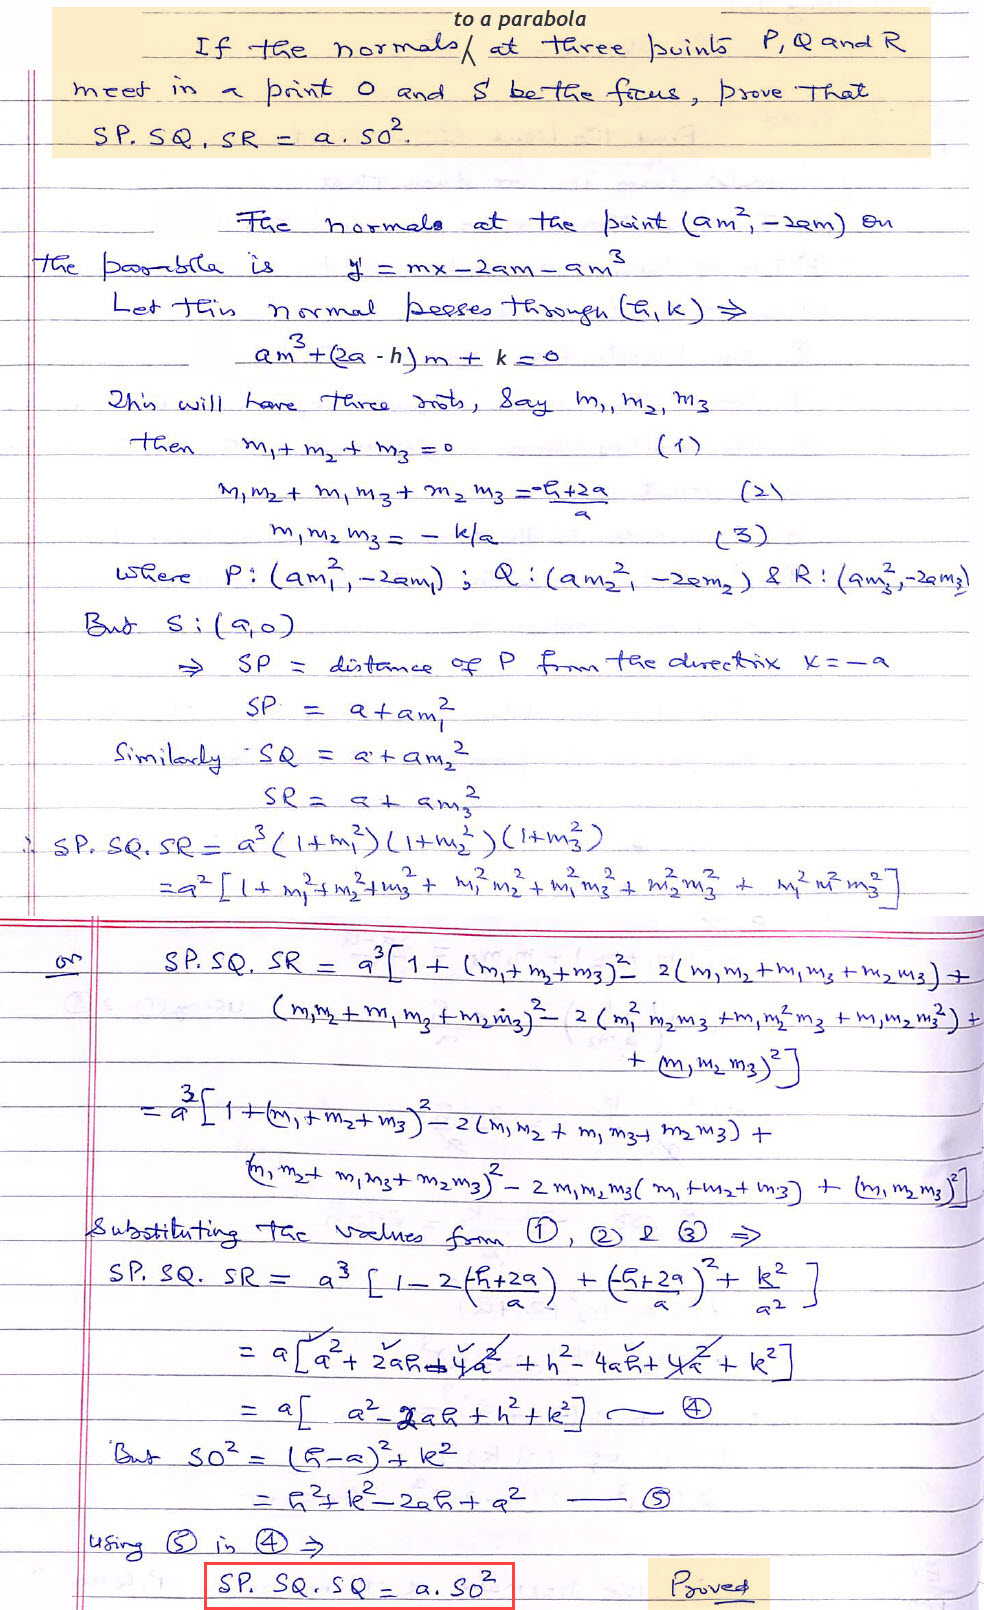 to a parabola
If the normals at three points P, Q and R
meet in a point O and S be the focus, prove that
SP. SQ. SR = a. SO².
The normals at the point (am², -2am) on
the parabola is y = mx - 2am - am³
Let this normal passes through (h, k) ⇒
am³ + (2a - h) m + k = 0
This will have three roots, say m₁, m₂, m₃
then m₁ + m₂ + m₃ = 0 (1)
m₁m₂ + m₁m₃ + m₂m₃ = (-h+2a)/a (2)
m₁m₂m₃ = - k/a (3)
where P: (am₁², -2am₁) ; Q: (am₂², -2am₂) & R: (am₃², -2am₃)
But S: (a, 0)
⇒ SP = distance of P from the directrix x = -a
SP = a + am₁²
Similarly SQ = a + am₂²
SR = a + am₃²
∴ SP. SQ. SR = a³ (1+m₁²) (1+m₂²) (1+m₃²)
= a² [1 + m₁² + m₂² + m₃² + m₁²m₂² + m₁²m₃² + m₂²m₃² + m₁²m²m₃²]
or SP. SQ. SR = a³ [1 + (m₁+m₂+m₃)² - 2(m₁m₂ + m₁m₃ + m₂m₃) +
(m₁m₂ + m₁m₃ + m₂m₃)² - 2(m₁²m₂m₃ + m₁m₂²m₃ + m₁m₂m₃²) +
+ (m₁m₂m₃)²]
= a³ [1 + (m₁+m₂+m₃)² - 2(m₁m₂ + m₁m₃ + m₂m₃) +
(m₁m₂ + m₁m₃ + m₂m₃)² - 2m₁m₂m₃(m₁+m₂+m₃) + (m₁m₂m₃)²]
Substituting the values from ①, ② & ③ ⇒
SP. SQ. SR = a³ [1 - 2((-h+2a)/a) + ((-h+2a)/a)² + k²/a²]
= a [a² + 2ah - 4a² + h² - 4ah + 4a² + k²]
= a [a² - 2ah + h² + k²] — ④
But SO² = (h-a)² + k²
= h² + k² - 2ah + a² — ⑤
using ⑤ in ④ ⇒
SP. SQ. SQ = a. SO² Proved